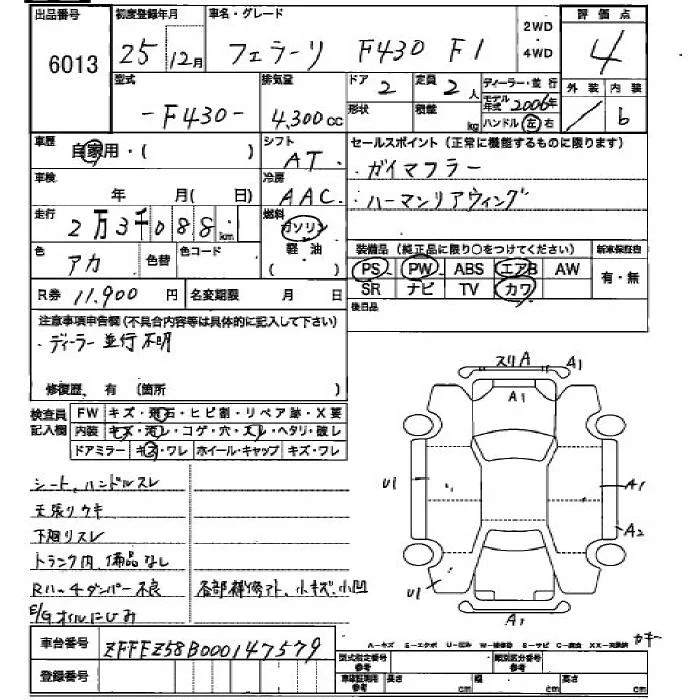 出品番号 初度登録年月 車名・グレード 2WD・4WD 評価点
6013 25年12月 フェラーリ F430 F1 4
型式 排気量 ドア 定員 ディーラー・並行 外装 内装
-F430- 4,300cc 2 2人 モデル年式 2006年 / b
形状 積載 kg ハンドル 左 右
車歴 自家用・( ) シフト AT セールスポイント(正常に機能するものに限ります)
・ガイマフラー
車検 年 月(日) 冷房 AAC
・ハーマンリアウィング
走行 2万3千088km 燃料 ガソリン 軽油 ( )
色 アカ 色替 色コード 装備品(純正品に限り○をつけてください) 新車保証書
PS PW ABS エアB AW 有・無
R券 11,900円 名変期限 月 日 SR ナビ TV カワ
後日品
注意事項申告欄(不具合内容等は具体的に記入して下さい)
・ディーラー並行不明
修復歴・有(箇所 )
スリA A1
A1
検査員記入欄 FW キズ・飛石・ヒビ割・リペア跡・X要
内装 キズ・汚レ・コゲ・穴・スレ・ヘタリ・破レ
ドアミラー キズ・ワレ ホイール・キャップ キズ・ワレ
U1 A1
A2
U1
A1
シート、ハンドルスレ
天張りウキ
下廻リスレ
トランク内、備品なし
Rハッチダンパー不良 各部補修アト、小キズ、小凹
E/Gオイルにじみ
カギー
車台番号 ZFFEZ58B000147579
A-キズ E-エクボ U-凹み W-補修跡 S-サビ C-腐食 XX-交換済
登録番号 型式指定番号参考 類別区分番号参考
車検証記載参考 長さ cm 幅 cm 高さ cm